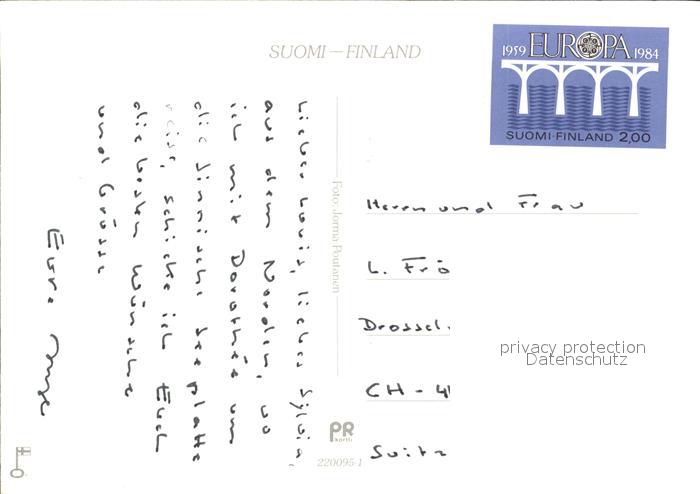 SUOMI — FINLAND
1959 EUROPA 1984
SUOMI-FINLAND 2,00
Lieber Louis, liebe Sylvia,
aus dem Norden, wo
ich mit Dorothée um
die finnische Seeplatte
reise, schicke ich Euch
die besten Wünsche
und Grüsse
Eure
Foto: Jorma Poutanen
Herrn und Frau
L. Frö
Drossel.
CH - 4
Suits
privacy protection
Datenschutz
PR
kortti
220095-1